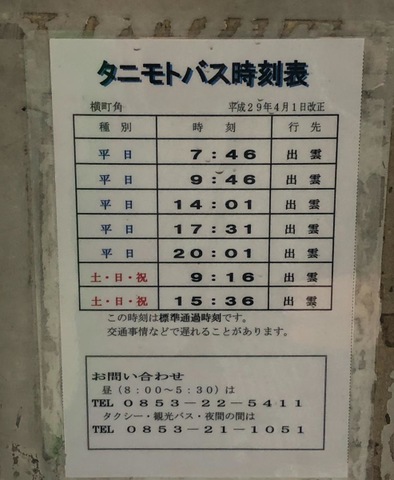 タニモトバス時刻表
横町角 平成29年4月1日改正
種別 時刻 行先
平日 7:46 出雲
平日 9:46 出雲
平日 14:01 出雲
平日 17:31 出雲
平日 20:01 出雲
土・日・祝 9:16 出雲
土・日・祝 15:36 出雲
この時刻は標準通過時刻です。
交通事情などで遅れることがあります。
お問い合わせ
昼(8:00~5:30)は
TEL 0853-22-5411
タクシー・観光バス・夜間の間は
TEL 0853-21-1051